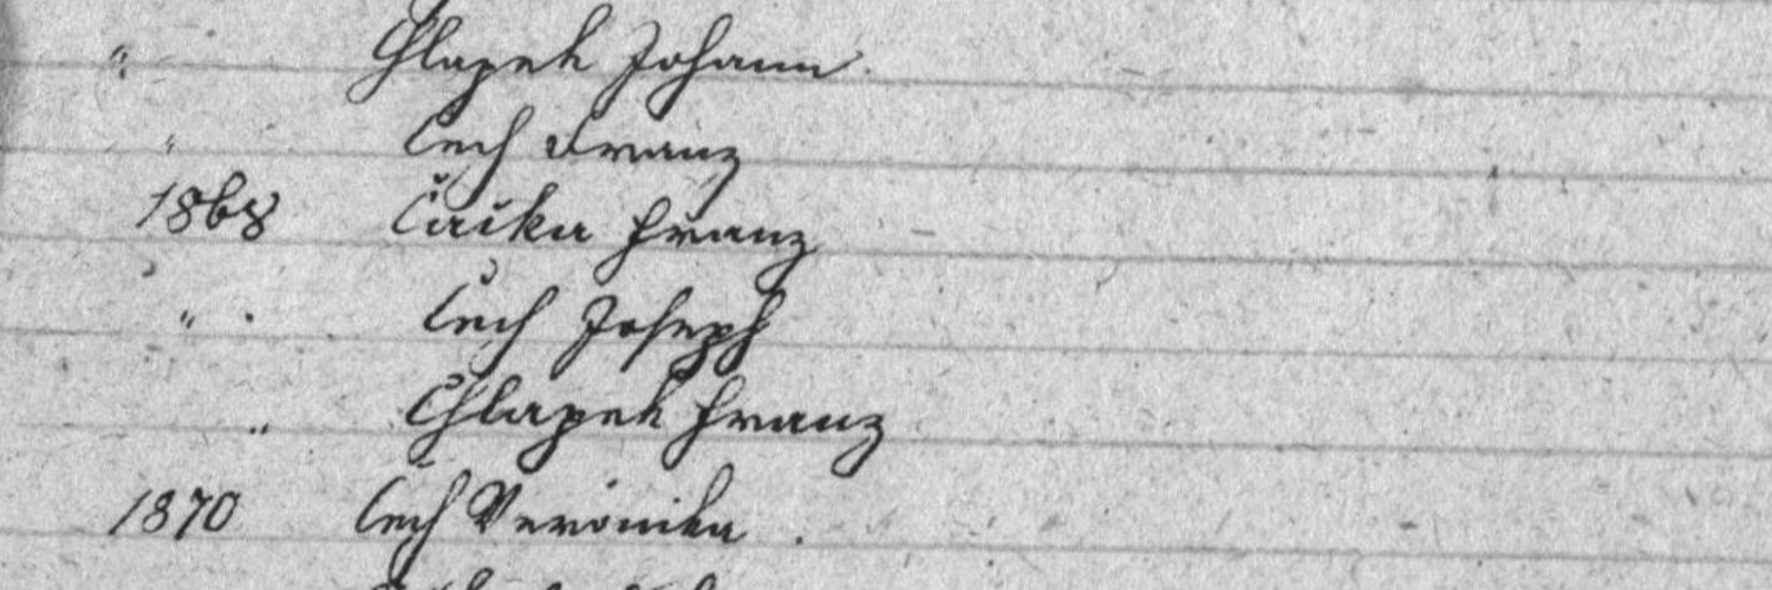 " Chlapek Johann
" Čech Franz
1868 Čačka Franz
" Čech Joseph
" Chlapek Franz
1870 Čech Veronika